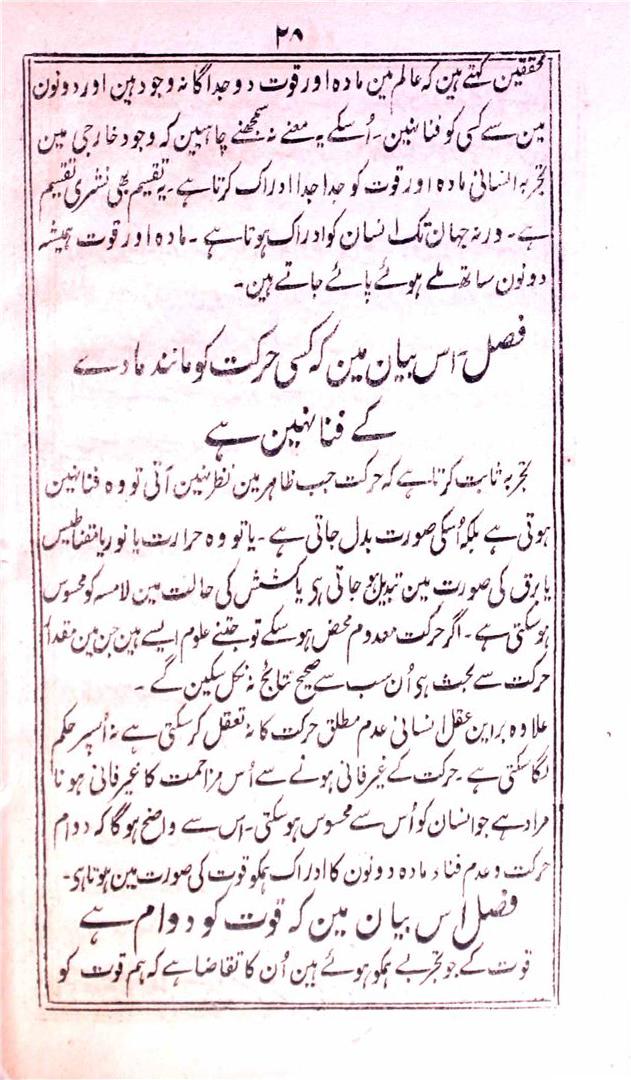 ۲۸
محققین کہتے ہین کہ عالم مین مادہ اور قوت دو جداگانہ وجود ہین اور دونون
مین سے کسی کو فنا نہین۔ اُسکے یہ معنے نہ سمجھنے چاہیین کہ وجود خارجی مین
تجربہ انسانی مادہ اور قوت کو جدا جدا ادراک کرتا ہے۔ یہ تقسیم بھی نشری تقسیم
ہے۔ ورنہ جہان تک انسان کو ادراک ہوتا ہے۔ مادہ اور قوت ہمیشہ
دونون ساتھ ملے ہوئے پائے جاتے ہین۔
فصل۔ اس بیان مین کہ کسی حرکت کو مانند مادے
کے فنا نہین ہے
تجربہ ثابت کرتا ہے کہ حرکت جب ظاہر مین نظر نہین آتی تو وہ فنا نہین
ہوتی ہے بلکہ اُسکی صورت بدل جاتی ہے۔ یا تو وہ حرارت یا نور یا مقناطیس
یا برق کی صورت مین تبدیل ہو جاتی ہی یا کشش کی حالت مین لامسہ کو محسوس
ہوسکتی ہے۔ اگر حرکت معدوم محض ہوسکے تو جتنے علوم ایسے ہین جن مین مقدار
حرکت سے بحث ہی اُن سب سے صحیح نتائج نہ نکل سکین گے۔
علاوہ براین عقل انسانی عدم مطلق حرکت کا نہ تعقل کرسکتی ہے نہ اُسپر حکم
لگا سکتی ہے۔ حرکت کے غیر فانی ہونے سے اُس مزاحمت کا غیر فانی ہونا
مراد ہے جو انسان کو اُس سے محسوس ہوسکتی۔ اس سے واضح ہوگا کہ دوام
حرکت و عدم فناء مادہ دونون کا ادراک ہمکو قوت کی صورت مین ہوتا ہی۔
فصل اس بیان مین کہ قوت کو دوام ہے
قوت کے جو تجربے ہمکو ہوئے ہین اُن کا تقاضا ہے کہ ہم قوت کو